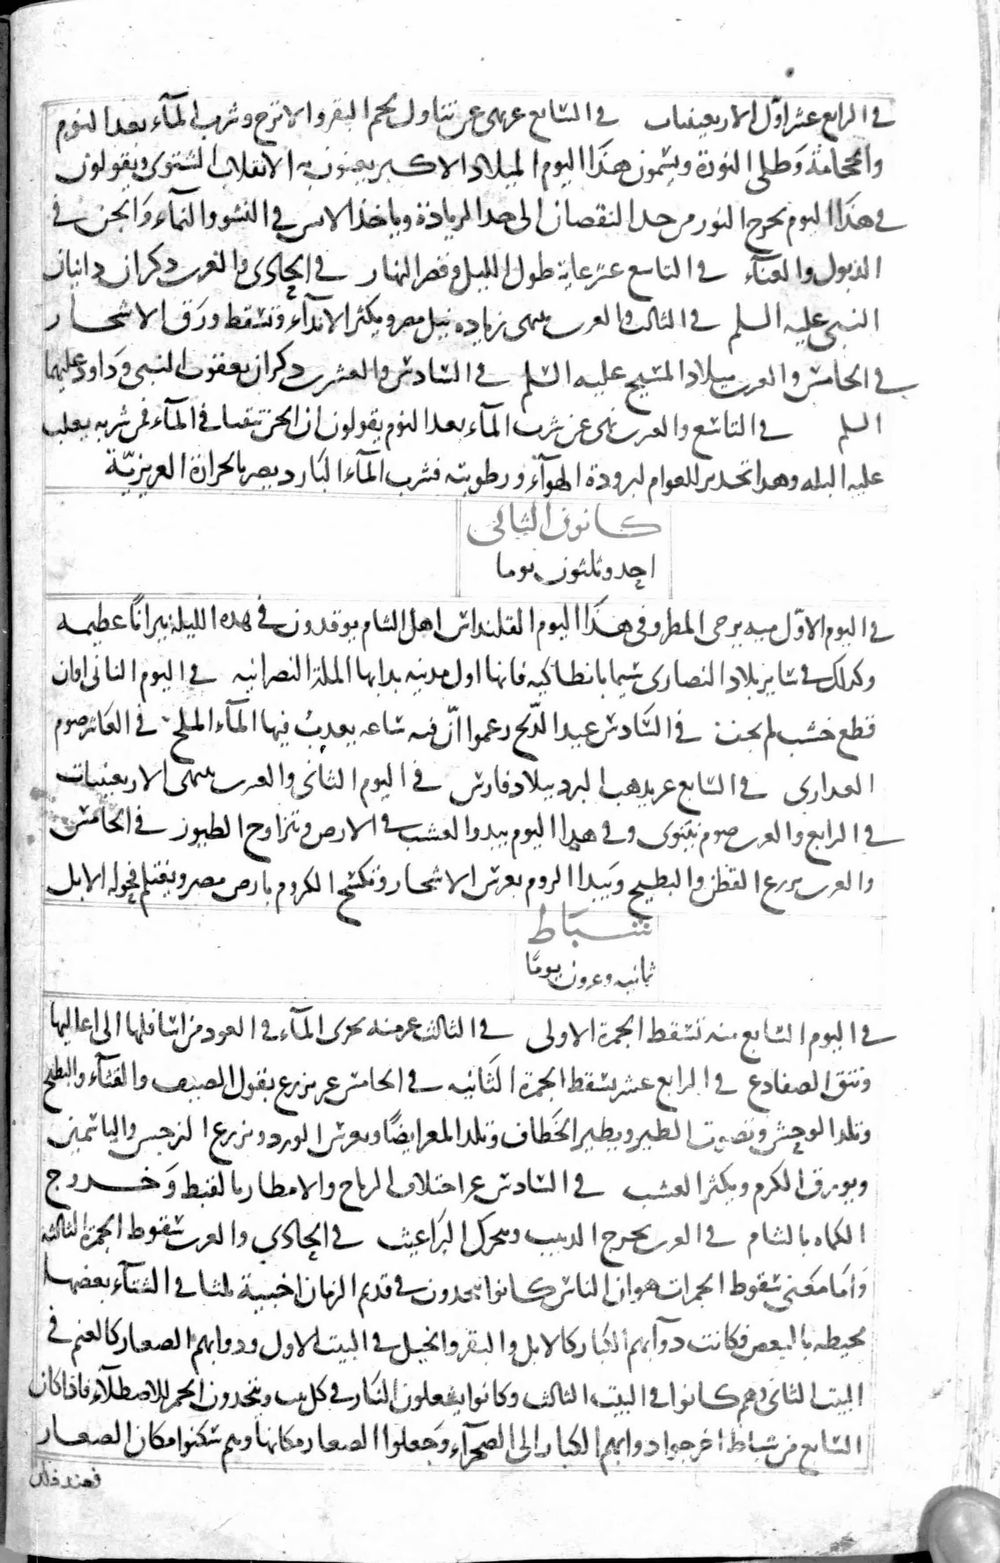 في الرابع عشر اول الاربعينيات في السابع عر نهى عن تناول لحم البقر والاترج وشرب المآء بعد النوم
والحجامة وطلى النورة ويسمون هذا اليوم الميلاد الاكبر يعنون به الانقلاب الشتوى ويقولون
في هذا اليوم يخرج النور من حد النقصان الى حد الزيادة وياخذ الانس في النشو والنمآء والجن في
الذبول والفنآء في التاسع عشر غاية طول الليل وقصر النهار في الحادي والعرب ذكران دانيال
النبي عليه السلم في الثالث والعرب ينتهى زياده نيل مصر ويكثر الاندآء وتسقط ورق الاشجار
في الخامس والعرب ميلاد المسيح عليه السلم في السادس والعشرين ذكران يعقوب النبي وداود عليهما
السلم في التاسع والعرب نهى عن شرب المآء بعد النوم يقولون ان الجن تتقيا في المآء فمن شربه يغلب
عليه البله وهذا تحذير للعوام لبرودة الهوآء ورطوبته فشرب المآء البارد يضر بالحرارة الغريزيّة
كانون الثاني
احد وثلثون يوما
في اليوم الاوّل منه يرجى المطر وفي هذا اليوم القلنداس اهل الشام يوقدون في هذه الليلة نيرانًا عظيمه
وكذلك في سائر بلاد النصارى سيما بانطاكيه فانها اول مدينه بدا بها الملة النصرانيه في اليوم الثاني اوان
قطع خشب لم يجفف في السادس عيد الدّنح زعموا ان فيه ساعه يعذب فيها المآء الملح في العاشر صوم
العذارى في السابع عر يذهب البرد ببلاد فارس في اليوم الثاني والعرب ينتهى الاربعينيات
في الرابع والعرب صوم نينوى وفي هذا اليوم يبدو العشب في الارض وتتزاوج الطيور في الخامس
والعرب يزرع القطن والبطيخ ويبدا الروم بغرس الاشجار وتكسح الكروم بارض مصر ويغتلم فحوله الابل
شباط
ثمانيه وعرون يومًا
في اليوم السابع منه تسقط الجمرة الاولى في الثالث عر منه يجرى المآء في العود من اسافلها الى اعاليها
وتنق الضفادع في الرابع عشر يسقط الجمرة الثانيه في الخامس عر يزرع بقول الصيف والقثآء والبطيخ
وتلد الوحش وتصوت الطير ويطير الخطاف وتلد المعز ايضًا ويغرس الورد ويزرع النرجس والياسمين
ويورق الكرم ويكثر العشب في السادس عر اختلاف الرياح والامطار بالقبط وخروج
الكماه بالشام في العرب يخرج الدبيب وتتحرك البراغيث في الحادي والعرب سقوط الجمرة الثالثه
واما معنى سقوط الجمرات هو ان الناس كانوا يتخذون في قديم الزمان اخبية ثلثا في الشتآء بعضها
محيطه بالبعض فكانت دوآبهم الكبار كالابل والبقر والخيل في البيت الاول ودوابهم الصغار كالغنم في
البيت الثاني وهم كانوا في البيت الثالث وكانوا يشعلون النار في كل بيت ويتخذون الجمر للاصطلآء فاذا كان
السابع من شباط اخرجوا دوابهم الكبار الى الصحرآء وجعلوا الصغار مكانها وهم سكنوا مكان الصغار
فعند ذلك